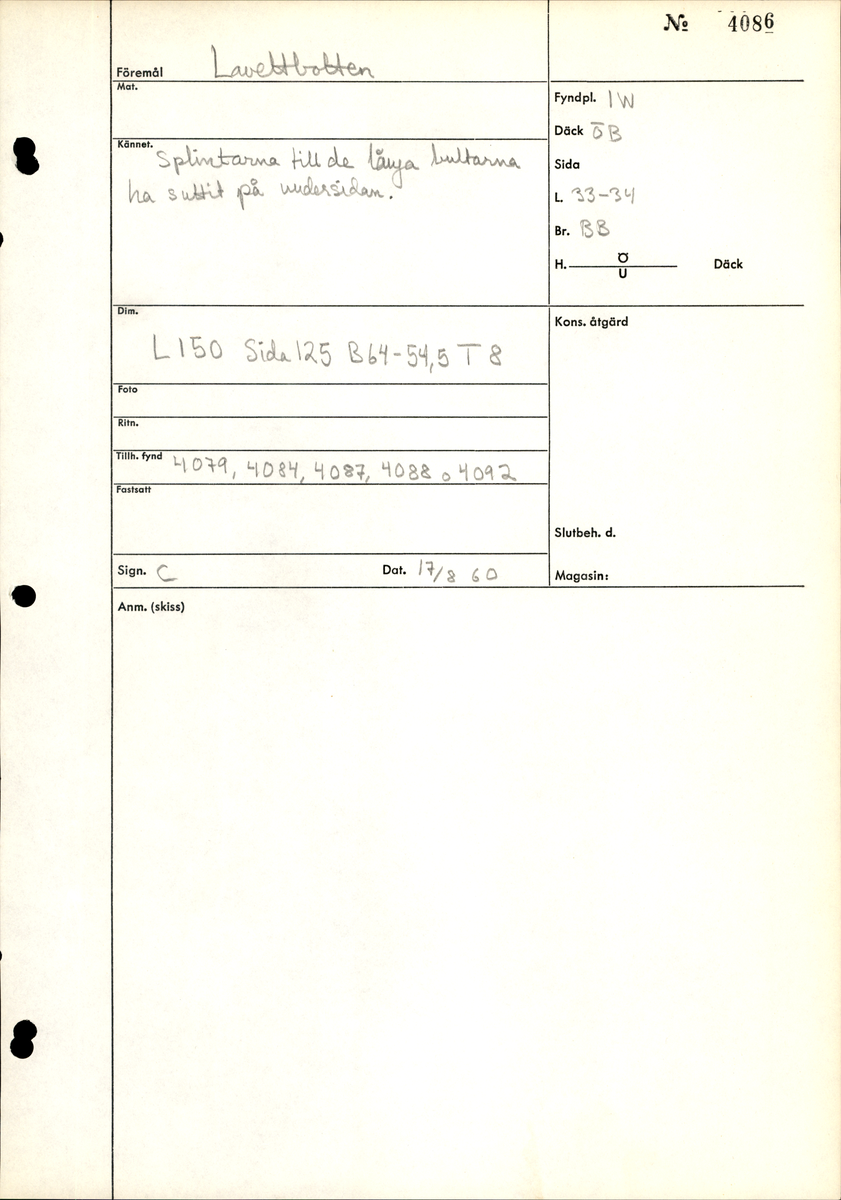 № 4086
Föremål Lavettbotten
Mat.
Kännet. Splintarna till de långa bultarna
ha suttit på undersidan.
Fyndpl. IW
Däck ÖB
Sida
L. 33-34
Br. BB
H. Ö Däck
U
Dim.
L 150 Sida 125 B 64-54,5 T 8
Foto
Ritn.
Tillh. fynd 4079, 4084, 4087, 4088 o 4092
Fastsatt
Sign. C Dat. 17/8 60
Kons. åtgärd
Slutbeh. d.
Magasin:
Anm. (skiss)